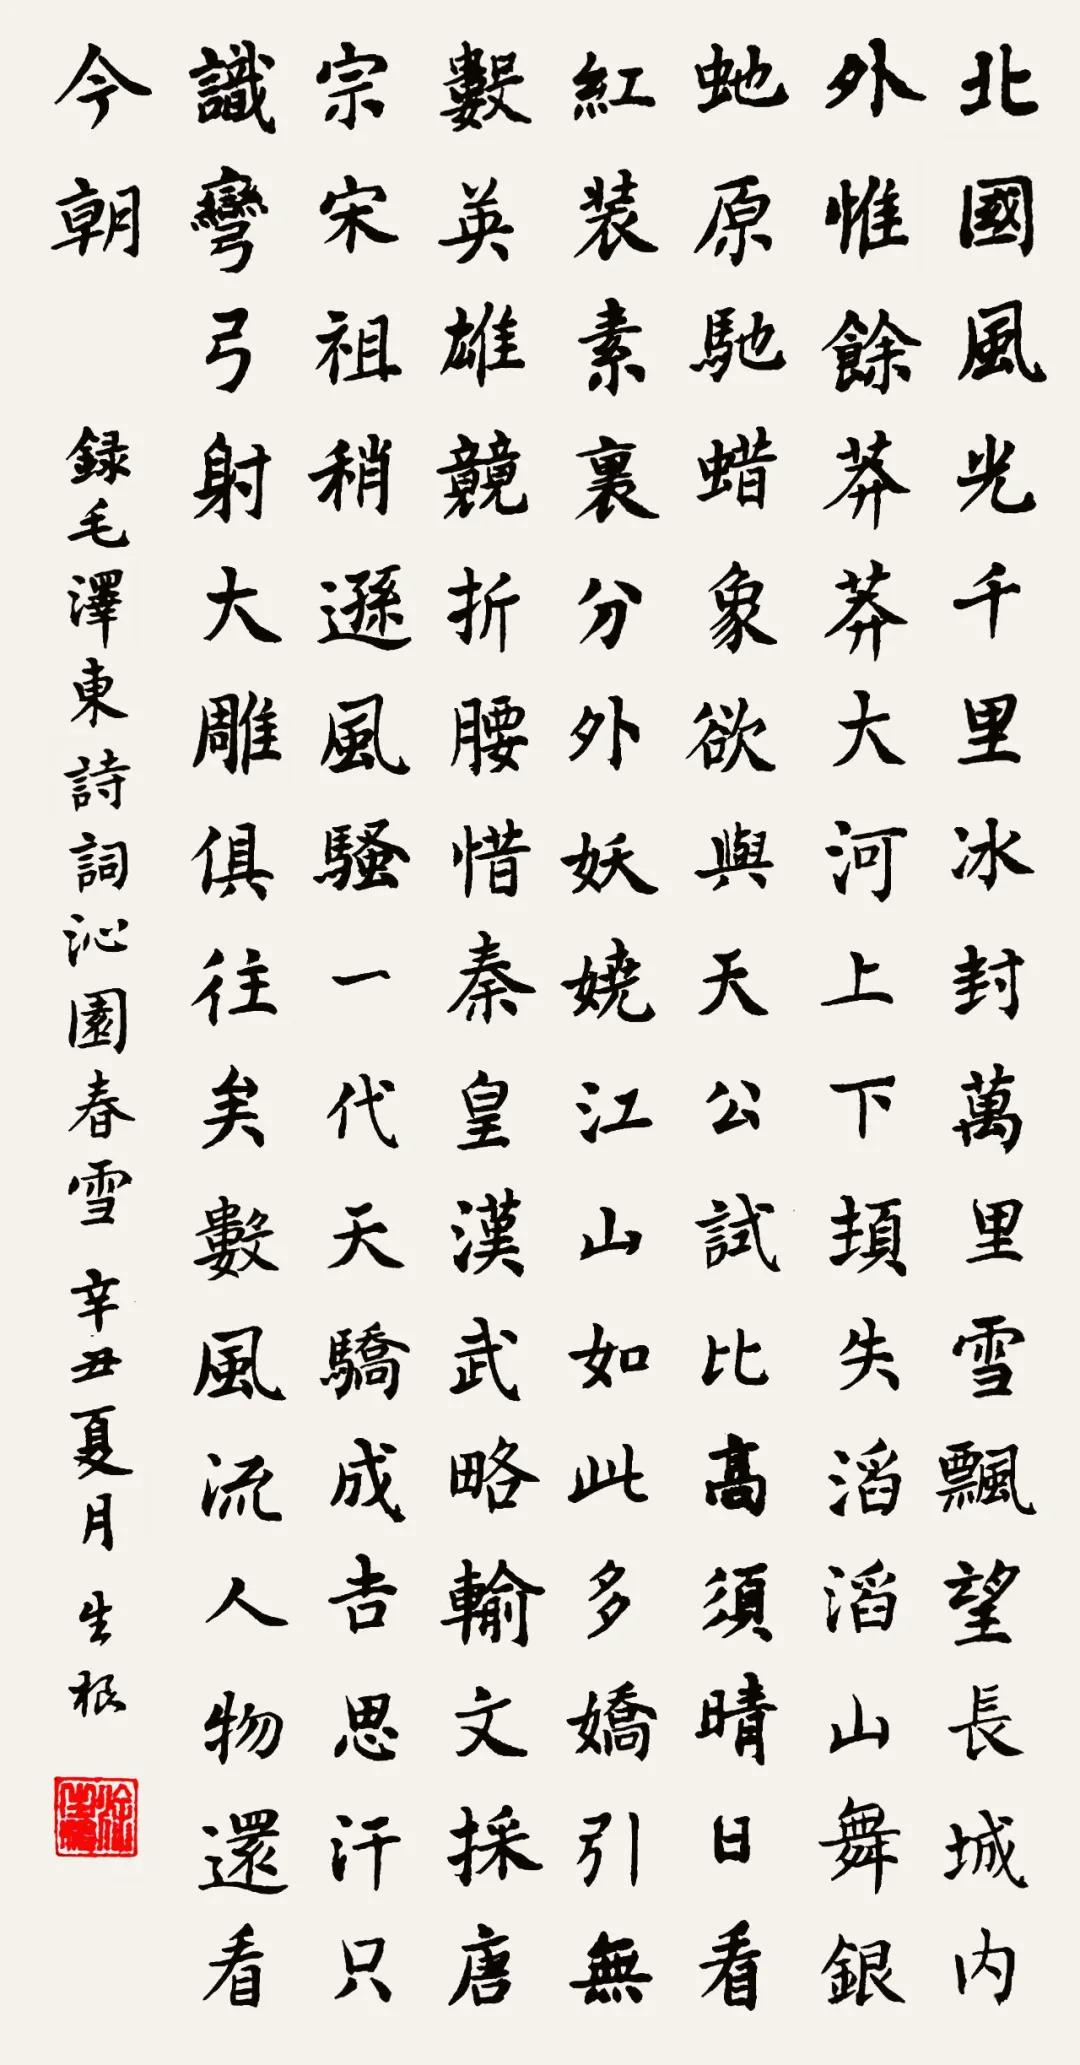 北國風光千里冰封萬里雪飄望長城内
外惟餘莽莽大河上下頃失滔滔山舞銀
虵原馳蜡象欲與天公試比高須晴日看
紅装素裹分外妖嬈江山如此多嬌引無
數英雄競折腰惜秦皇漢武略輸文採唐
宗宋祖稍遜風騷一代天驕成吉思汗只
識彎弓射大雕俱往矣數風流人物還看
今朝
録毛澤東詩詞沁園春雪 辛丑夏月 生根